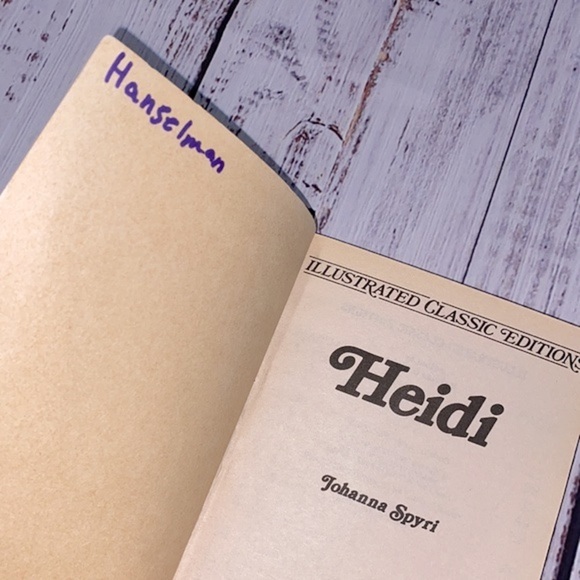 Hanselman
ILLUSTRATED CLASSIC EDITIONS
Heidi
Johanna Spyri